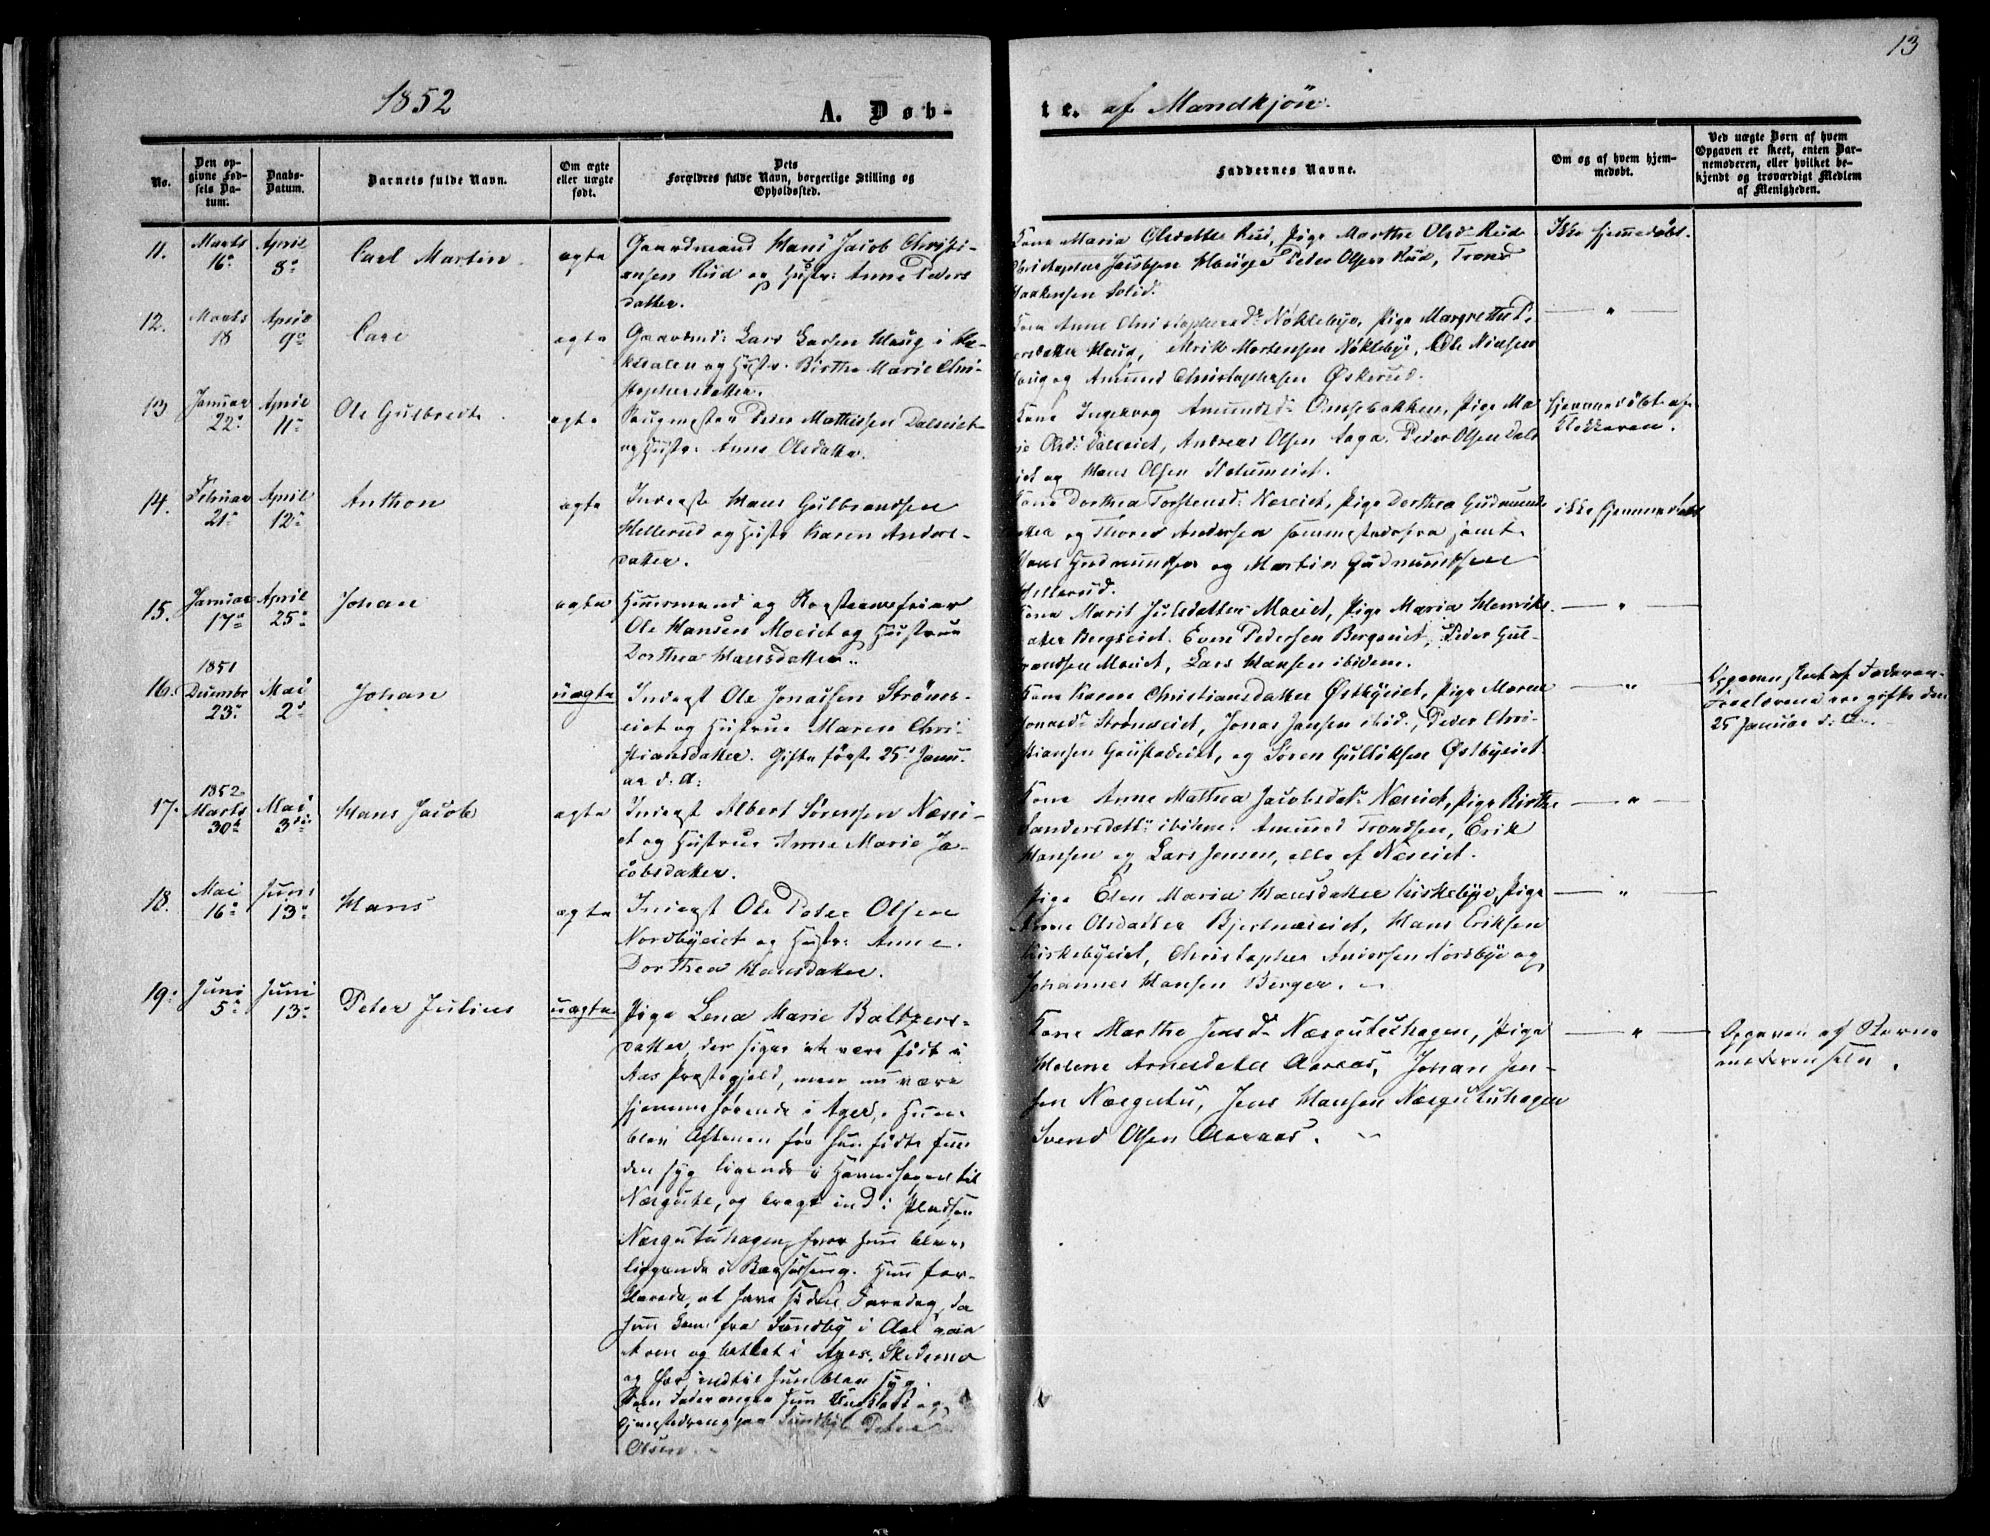 13
1852
A. Døb-
te. af Mandkjøn.
No.
Den op-
givne Fød-
sels Da-
tum.
Daabs-
Datum.
Barnets fulde Navn.
Om ægte
eller uægte
født.
Dets
Forældres fulde Navn, borgerlige Stilling og
Opholdssted.
Faddernes Navne.
Om og af hvem hjem-
medøbt.
Ved uægte Børn af hvem
Opgaven er skeet, enten Bar-
nemoderen, eller hvilket be-
kjendt og troværdigt Medlem
af Menigheden.
11.
Marts
16
April
8
Carl Martin
ægte
Gaardmand Hans Jacob Christi-
ansen Rud og Hustr: Anne Peders
datter.
Kone Maria Olsdatter Rud, Pige Marthe Olsd. Rud
Christopher Jacobsen Hauger Peder Olsen Rud, Trond
Haakensen Solid.
Ikke hjemmedøbt.
12.
Marts
18
April
9
Carl
ægte
Gaardmd: Lars Larsen Haug i
og Hustr. Birthe Marie Chri-
stophersdatter.
Kone Anne Christophersd. Nøklebye, Pige Margrethe P
ersdatter Haug, Mortensen Nøklebye, Ole Nielsen
Haug og Amund Christophersen Øskerud.
"
13
Januar
22
April
11
Ole Gulbrandt
ægte
Peder Mathisen Dalseiet
og Hustr. Anne Olsdatter.
Kone Ingeborg Amundsd. Pige Ma
rie Olsd. Dalseiet, Andreas Olsen Aaga, Peder Olsen Dals
eiet og Hans Olsen
Hjemmedøbt af
Klokkeren.
14.
Februar
21
April
12
Anthon
ægte
Inderst Hans Gulbrandsen
Hellerud og Hustr Karen Anders-
datter.
Kone Dorthea Torstensd. Næseiet, Pige Dorthea Gudmunds
datter og Thorer Andersen sammestedsfra samt
Hans Gudmundsen og Martin Gudmundsen
Hellerud.
ikke hjemmedøbt
15.
Januar
17
April
25
Johan
ægte
Huusmand og
Ole Hansen Moeiet og Hustrue
Dorthea Hansdatter.
Kone Marit Julsdatter Moeiet, Pige Maria Henriks
datter Bergseiet. Even Pedersen Bergseiet, Peder Gul-
brandsen Moeiet, Lars Hansen ibidem.
"
16.
1851
Decembr
23
Mai
2
Johan
uægte
Inderst Ole Jonassen Strøms-
eiet og Hustrue Maren Chri-
stiansdatter. Gifte først 25 Janu-
ar d. A.
Kone Karen Christiansdatter Østbyeiet, Pige Maren
Jonasd. Strømseiet, Jonas Jansen ibid., Peder Chri-
stiansen og Søren Gulliksen Østbyeiet
"
Opgaven skeet af Faderen.
Forældrene ere gifte den
25 Januar d. A.
17.
1852
Marts
30
Mai
3
Hans Jacob
ægte
Inderst Albert Sørensen Næsei-
et og Hustrue Anne Marie Ja-
cobsdatter.
Kone Anne Mathea Jacobsdt. Næseiet, Pige Birthe
Sandersdatt. ibidem. Amund Trondsen, Erik
Hansen og Lars Jensen, alle af Næseiet.
"
18.
Mai
16
Juni
13
Hans
ægte
Inderst Ole Peter Olsen
Nordbyeiet og Hustr: Anne
Dorthea Hansdatter.
Pige Elen Maria Hansdatter Kirkebye, Pige
Anne Olsdatter Bjertnæseiet, Hans Eriksen
Kirkebyeiet, Christopher Andersen Nordbye og
Johannes Hansen Berger.
"
19.
Juni
5
Juni
13
Peter Julius
uægte
Pige Lena Marie Baltzers-
datter, der siger at være født i
Aas Præstegjeld, men nu være
hjemmehørende i Ager. Hun
blev Aftenen før hun fødte fun-
den syg liggende i Havnehagen til
Næsgutu, og bragt ind i Pladsen
Næsgutuhagen, hvor hun blev
liggende i Barselseng. Hun for-
klarede, at have siden Faredag, da
hun kom fra Sundby i
og betlet i Ager, Skedsmo
og før indtil hun blev syg.
Som Fader angav hun Ungkarl og
Tjenestedreng paa Sundbye Peter
Olsen.
Kone Marthe Jensd. Næsgutuhagen, Pige
Helene Arnesdatter Aaraas, Johan Jen-
sen Næsgutu, Jens Hansen Næsgutuhagen
Svend Olsen Aaraas.
"
Opgaven af Barne
moderen selv.